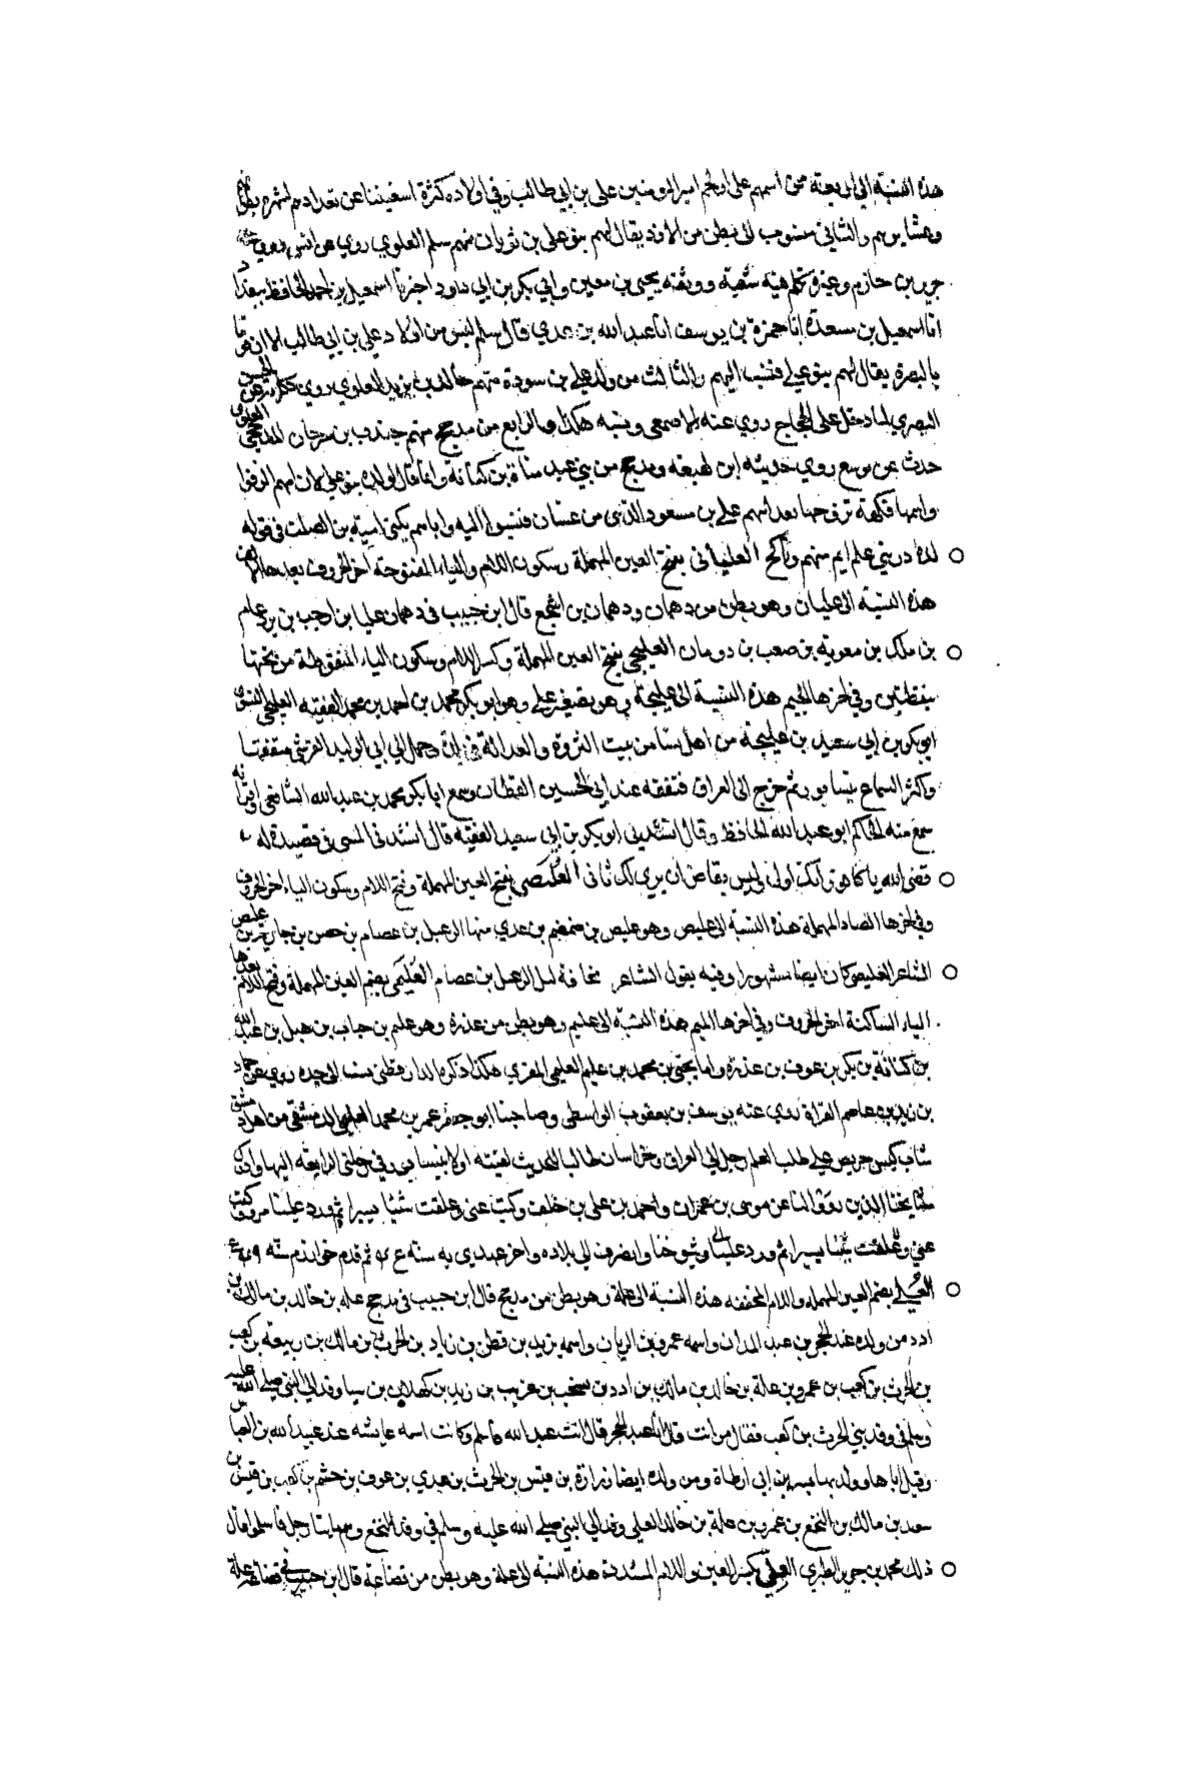 هذه النسبة الى اربعة من اسمهم على اولهم امير المومنين على بن ابي طالب وفي اولاده كثرة استغنينا عن تعدادهم لشهرتهم
وعشايرهم والثاني منسوب الى بطن من الازد يقال لهم بنو علي بن ثوبان منهم سلم العلوي روي عن انس روي عنه
جرير بن حازم وغيره تكلم فيه شعبة ووثقه يحيى بن معين وابي بكر بن ابي داود اخبرنا اسمعيل بن احمد الحافظ ببغداد
انا اسمعيل بن مسعدة انا حمزة بن يوسف انا عبد الله بن عدي قال سلم ليس من اولاد علي بن ابي طالب الا ان قوما
بالبصرة يقال لهم بنو علي فنسب اليهم والثالث من ولد علي بن سودة منهم خالد بن يزيد العلوي روي حكاية عن الحسن
البصري لما دخل على الحجاج روي عنه الاصمعي ونسبه هكذا والرابع من مدحج منهم جندب بن سرحان المدلجي العلوي
حدث عن يوسع روي حديثه ابن لهيعة ومدحج من بني عبد مناة بن كنانة وانما قال لولده بنو علي لان امهم الزفرا
واسمها فكهة تزوجها بعد ابيهم علي بن مسعود الذبى من غسان فنسبوا اليه واياهم يكنى امية بن الصلت في قوله
لله در بني علي ايم منهم وناكح العلياني بفتح العين المهملة وسكون اللام والياء المفتوحة اخر الحروف بعدها الالف
هذه النسبة الى عليان وهو بطن من دهمان ودهمان بن اشجع قال ابن حبيب في دهمان عليا ابن ارحب بن دعام
بن ملك بن معوية بن صعب بن دومان العليجي بفتح العين المهملة وكسر اللام وسكون الياء المنقوطة من تحتها
بنقطتين وفي اخرها الجيم هذه النسبة الى عليجة وهو تصغير علي وهو ابو بكر محمد بن احمد بن محمد الفقيه العليجي النسوي
ابو بكر بن ابي سعيد بن عليجة من اهل نسا من بيت الثروة والعدالة رحال الي ابي الوليد القرشي متفقها
واكثر السماع بنيسابور ثم خرج الى العراق فتفقه عند ابي الحسين القطان وسمع ابا بكر محمد بن عبد الله الشافعي واقرانه
سمع منه الحاكم ابو عبد الله الحافظ وقال انشدني ابو بكر بن ابي سعيد الفقيه قال انشدنا المنسى في قصيدة له
قضى الله يا كافور انك اول وليس بقاض ان يري لك ثاني العليصي بفتح العين المهملة وفتح اللام وسكون الياء اخر الحروف
وفي اخرها الصاد المهملة هذه النسبة الى عليص وهو عليص بن ضمضم بن عدي منها الزعبل بن عصام بن حصن بن حارثة بن عليص
الشاعر العليصي كان ايضا مشهورا وفيه يقول الشاعر مخافة لسل الزعبل بن عصام العليمي بضم العين المهملة وفتح اللام بعدها
الياء الساكنة اخر الحروف وفي اخرها الميم هذه النسبة الى عليم وهو بطن من عذرة وهو عليم بن جناب بن هبل بن عبد الله
بن كنانة بن بكر بن عوف بن عذرة واما يحيى بن محمد بن عليم العليمي المقري هكذا ذكره الدارقطني نسب الى جده روي عن حماد
بن زيد عاصم القراة روي عنه يوسف بن يعقوب الواسطي وصاحبنا ابو جعفر عمر بن محمد العليمي الدمشقي من اهل دمشق
شاب كيس حريص على طلب العلم رحل الي العراق وخراسان طالبا للحديث لقيته اولا بنيسابور في رحلتي الرابعة اليها وادرك
مشايخنا الذين رووا لنا عن موسى بن عمران واحمد بن علي بن خلف وكتب عني وعلقت شيئا يسيرا ثم ورد علينا مرو وكتب
عني وعلقت شيئا يسيرا ثم ورد علينا وشيوخنا وانصرف الى بلاده واخر عهدي به سنة ثم قدم خوارزم سنة
العلي بضم العين المهملة واللام المخففة هذه النسبة الى علة وهو بطن من مدحج قال ابن حبيب في مدحج علة بن خالد بن مالك بن
ادد من ولده عبد الحجر بن عبد المدان واسمه عمرو بن الريان واسمه يزيد بن قطن بن زياد بن الحرث بن مالك بن ربيعة بن كعب
بن الحرث بن كعب بن عمرو بن علة بن خالد بن مالك بن ادد بن يشجب بن عريب بن زيد بن كهلان بن سبا وفد الي النبي صلى الله عليه
وسلم في وفد بني الحرث بن كعب فقال من انت قال انا عبد الحجر قال انت عبد الله فاسلم وكانت اسمه عايشه عند عبيد الله بن العباس
وقتل اباها وولدها بسر بن ابي ارطاة ومن ولده ايضا زرارة بن قيس بن الحرث بن عدي بن عوف بن جشم بن كعب بن قيس بن
سعد بن مالك بن النخع بن عمرو بن علة بن خالد العلي وفد الي النبي صلى الله عليه وسلم في وفد النخع وهم مايتا رجل فاسلموا قال
ذلك محمد بن جرير الطبري العلي بكسر العين واللام المشددة هذه النسبة الى علة وهو بطن من قضاعة قال ابن حبيب في قضاعة علة